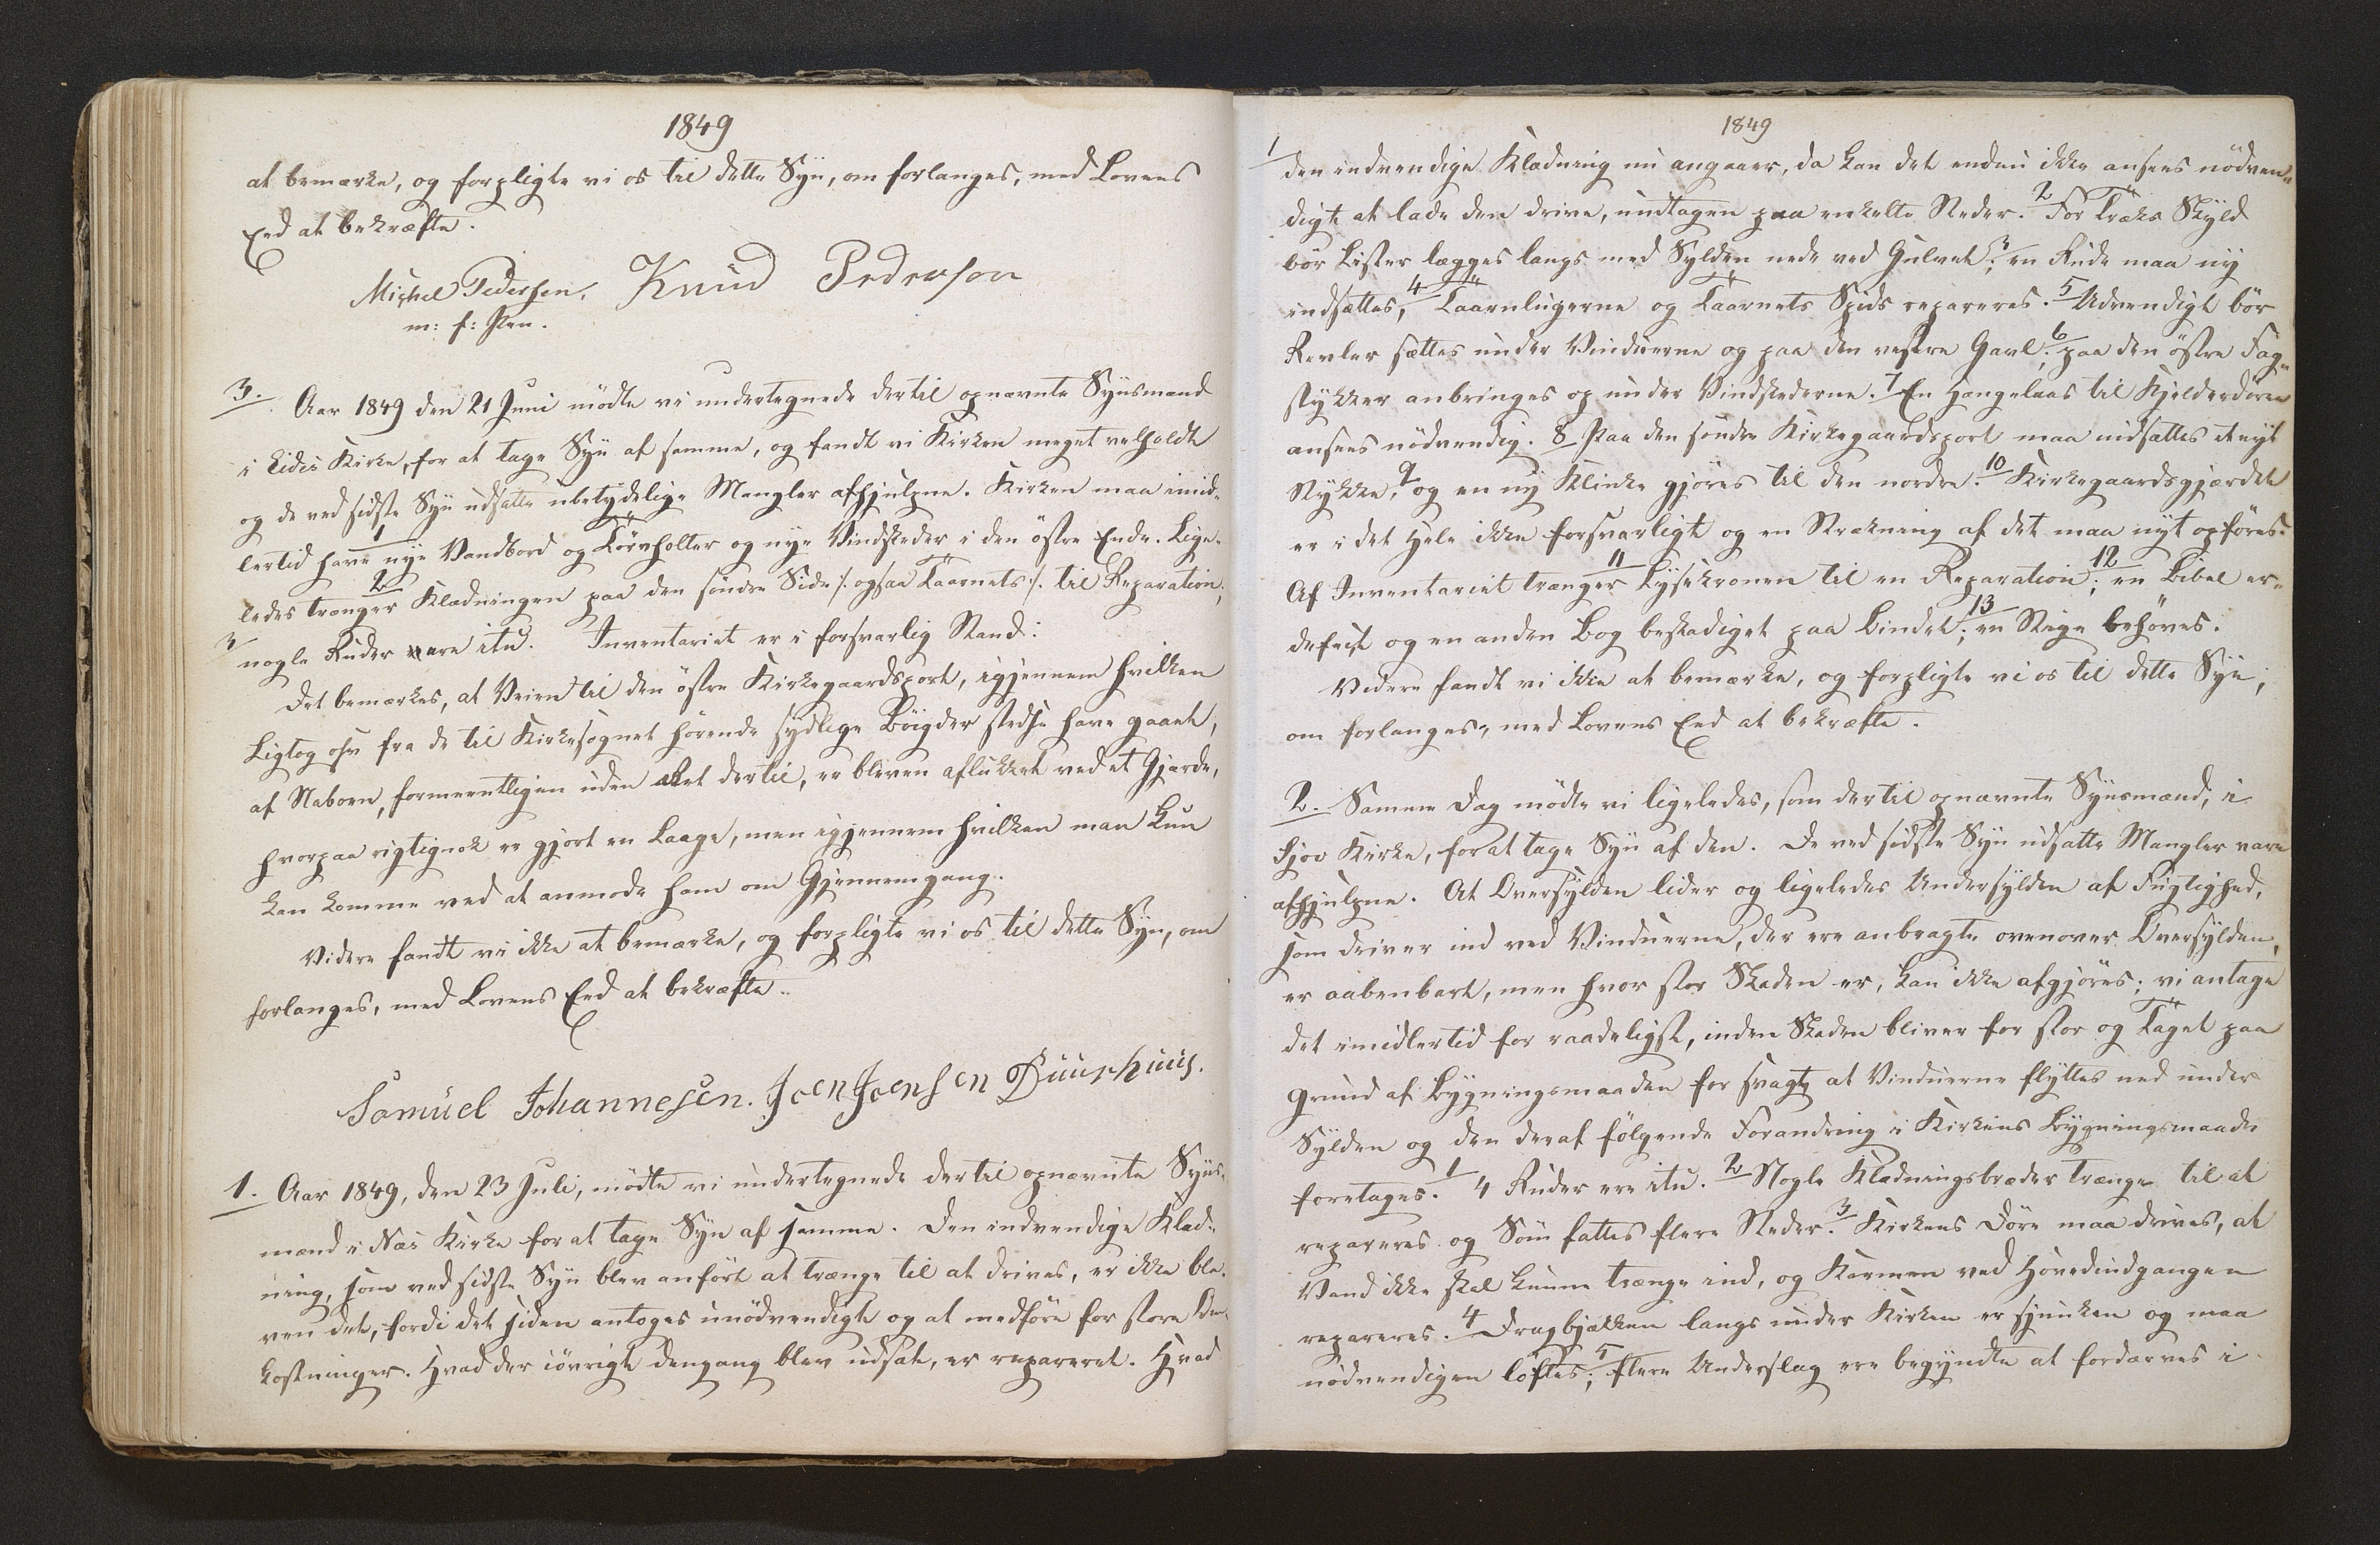 1849
at bemærke, og forpligte vi os til dette Syn, om forlanges, med Lovens
Eed at bekræfte.
Michel Pedersen. Knud Pedersson
m: f: Pen.
3. Aar 1849 den 21 Juni mödte vi undertegnede dertil opnævnte Synsmænd
i Eides Kirke, for at tage Syn af samme, og fandt vi Kirken meget velholdt
og de ved sidste Syn udsatte ubetydelige Mangler afhjulpne. Kirken maa imid-
lertid have 1 nye Vandbord og Törvholter og nye Vindskeder i den östre Ende. Lige-
ledes trænger 2 Klædningen paa den söndre Side /: ogsaa Taarnets :/ til Reparation;
3 nogle Ruder ere itu. Inventariet er i forsvarlig Stand:
Det bemærkes, at Veien til den östre Kirkegaardsport, igjennem hvilken
Ligtog osv fra de til Kirkesognet hörende sydlige Böigder stedse have gaaet,
af Naboen, formeentligen uden Ret dertil, er bleven aflukket ved et Gjærde,
hvorpaa rigtignok er gjort en Laage, men igjennem hvilken man kun
kan komme ved at anmode ham om Gjennemgang.
Videre fandt vi ikke at bemærke, og forpligte vi os til dette Syn, om
forlanges, med Lovens Eed at bekræfte.
Samuel Johannesen. Joen Joensen Buurhuus.
1. Aar 1849, den 23 Juli, mödte vi undertegnede dertil opnævnte Syns-
mænd i Næs Kirke for at tage Syn af samme. Den indvendige Klæd-
ning, som ved sidste Syn blev anfört at trænge til at drives, er ikke ble-
ven det, fordi det siden antoges unödvendigt og at medföre for store Om-
kostninger. Hvad der iövrigt dengang blev udsat, er repareret. Hvad
1849
1 den indvendige Klædning nu angaaer, da kan det endnu ikke ansees nödven-
digt at lade den drive, undtagen paa enkelte Steder. 2 For Træks Skyld
bör Lister lægges langs med Sylden nede ved Gulvet; 3 en Rude maa ny
indsættes, 4 Taarnlugerne og Taarnets Spids repareres. 5 Udvendigt bör
Revler sættes under Vinduerne og paa den vestre Gavl; 6 paa den östre Fag-
stykker anbringes op under Vindskederne. 7 En Hængelaas til Kjelderdören
ansees nödvendig. 8 Paa den söndre Kirkegaardsport maa indsættes et nyt
Stykke, 9 og en ny Klinke gjöres til den nordre. 10 Kirkegaardsgjærdet
er i det Hele ikke forsvarligt og en Strækning af det maa nyt opföres.
Af Inventariet trænger 11 Lysekronen til en Reparation; 12 en Bibel er
defect og en anden Bog beskadiget paa Bindet; 13 en Stige behöves.
Videre fandt vi ikke at bemærke, og forpligte vi os til dette Syn,
om forlanges, med Lovens Eed at bekræfte.
2. Samme Dag mödte vi ligeledes, som dertil opnævnte Synsmænd, i
Sjov Kirke, for at tage Syn af den. De ved sidste Syn udsatte Mangler vare
afhjulpne. At Oversylden lider og ligeledes Undersylden af Fugtighed,
som driver ind ved Vinduerne, der ere anbragte ovenover Oversylden,
er aabenbart, men hvor stor Skaden er, kan ikke afgjöres; vi antage
det imidlertid for raadeligst, inden Skaden bliver for stor og Taget paa
Grund af Bygningsmaaden for svagt, at Vinduerne flyttes ned under
Sylden og den deraf fölgende Forandring i Kirkens Bygningsmaade
foretages. 1 4 Ruder ere itu. 2 Nogle Klædningsbræder trænge til at
repareres og Söm fattes flere Steder. 3 Kirkens Döre maa drives, at
Vand ikke skal kunne trænge ind, og Karmen ved Hovedindgangen
repareres. 4 Dragbjælken langs under Kirken er sjunken og maa
nödvendigen löftes; 5 flere Underslag ere begyndte at fordærves i